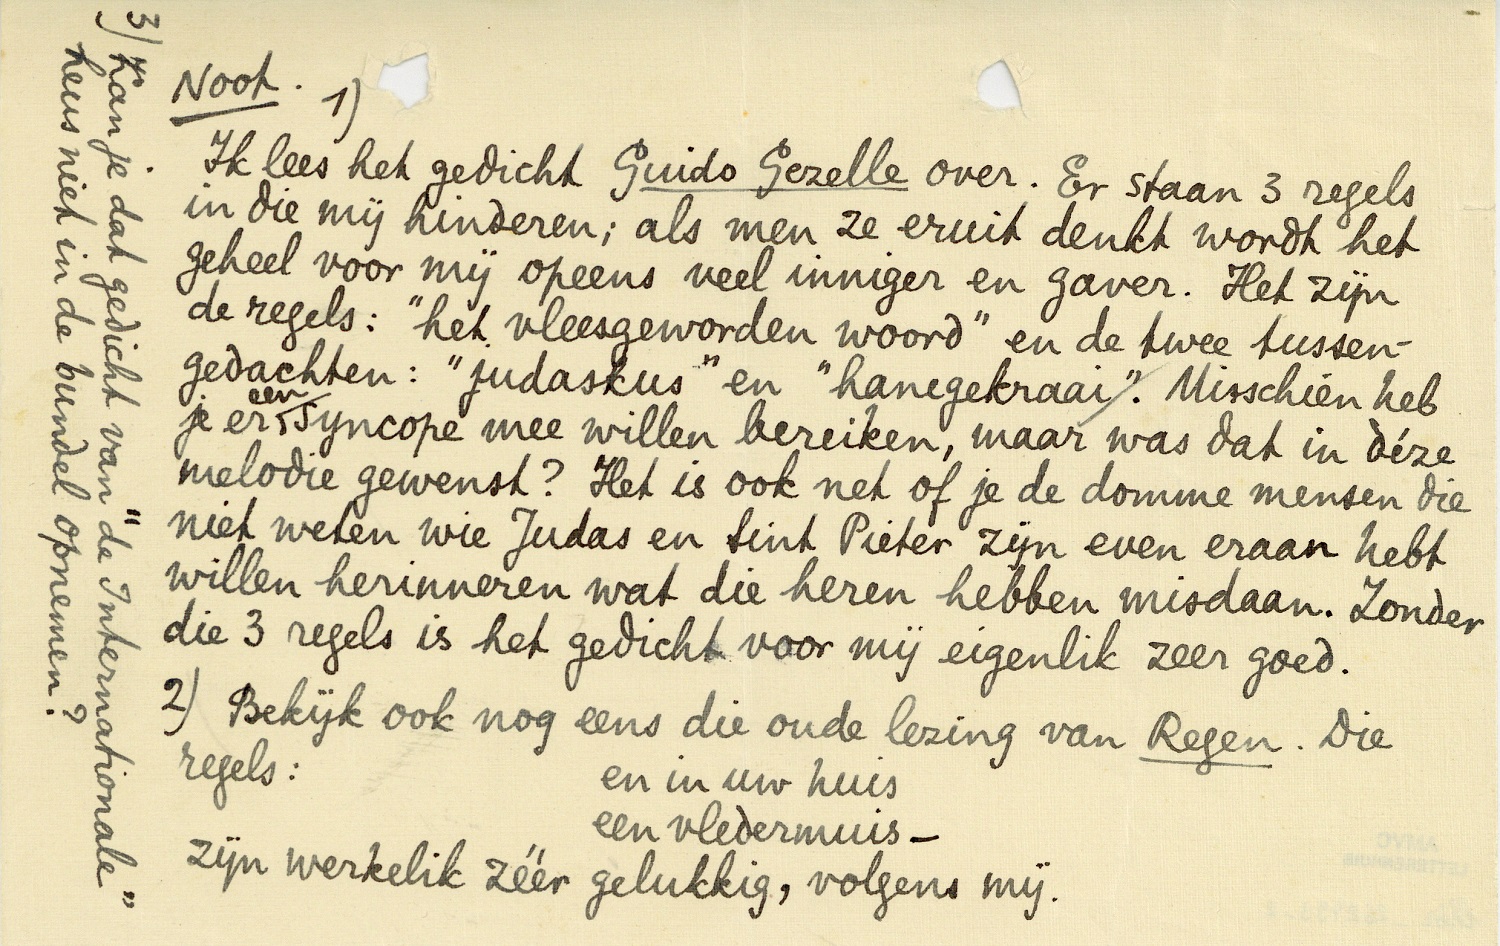 Noot. 1)
Ik lees het gedicht Guido Gezelle over. Er staan 3 regels
in die mij hinderen; als men ze eruit denkt wordt het
geheel voor mij opeens veel inniger en gaver. Het zijn
de regels: "het vleesgeworden woord" en de twee tussen-
gedachten: "judaskus" en "hanegekraai". Misschien heb
je er een syncope mee willen bereiken, maar was dat in déze
melodie gewenst? Het is ook net of je de domme mensen die
niet weten wie Judas en sint Pieter zijn even eraan hebt
willen herinneren wat die heren hebben misdaan. Zonder
die 3 regels is het gedicht voor mij eigenlik zeer goed.
2) Bekijk ook nog eens die oude lezing van Regen. Die
regels:
en in uw huis
een vledermuis—
zijn werkelik zéér gelukkig, volgens mij.
3) Kan je dat gedicht van "de Internationale"
heus niet in de bundel opnemen?